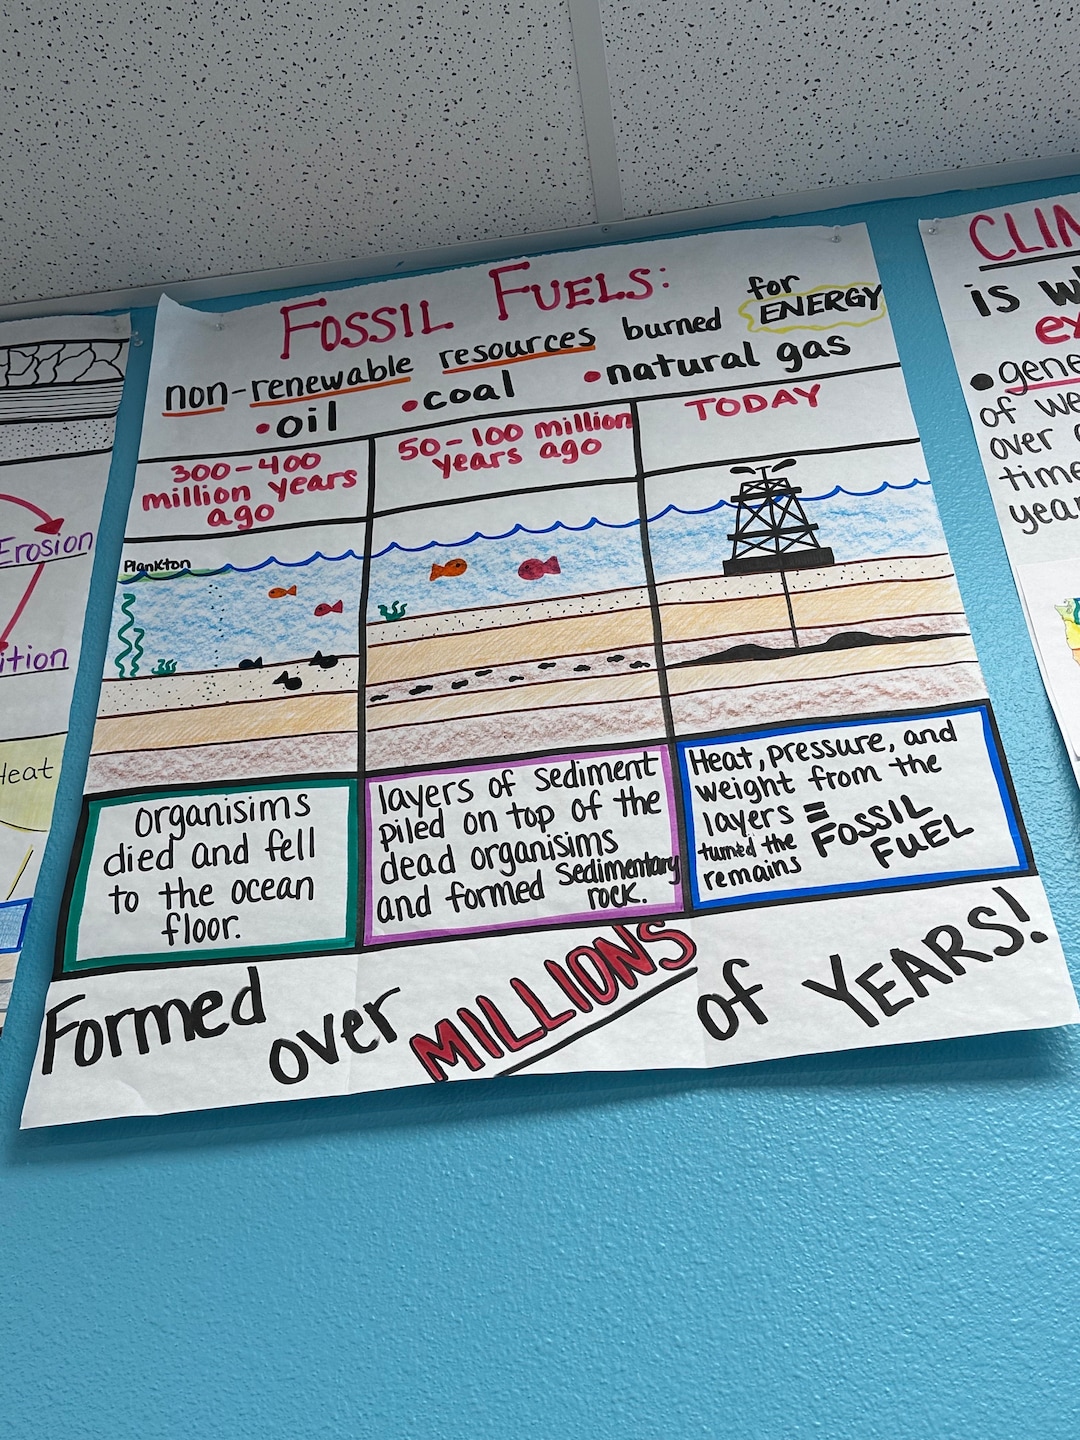 FOSSIL FUELS:
non-renewable resources burned for ENERGY
•oil •coal •natural gas
300-400
million years
ago
50-100 million
years ago
TODAY
Plankton
organisims
died and fell
to the ocean
floor.
layers of sediment
piled on top of the
dead organisims
and formed Sedimentary
rock.
Heat, pressure, and
weight from the
layers =
turned the
remains
FOSSIL
FUEL
Formed over MILLIONS of YEARS!
Erosion
Heat
is
•
of
over